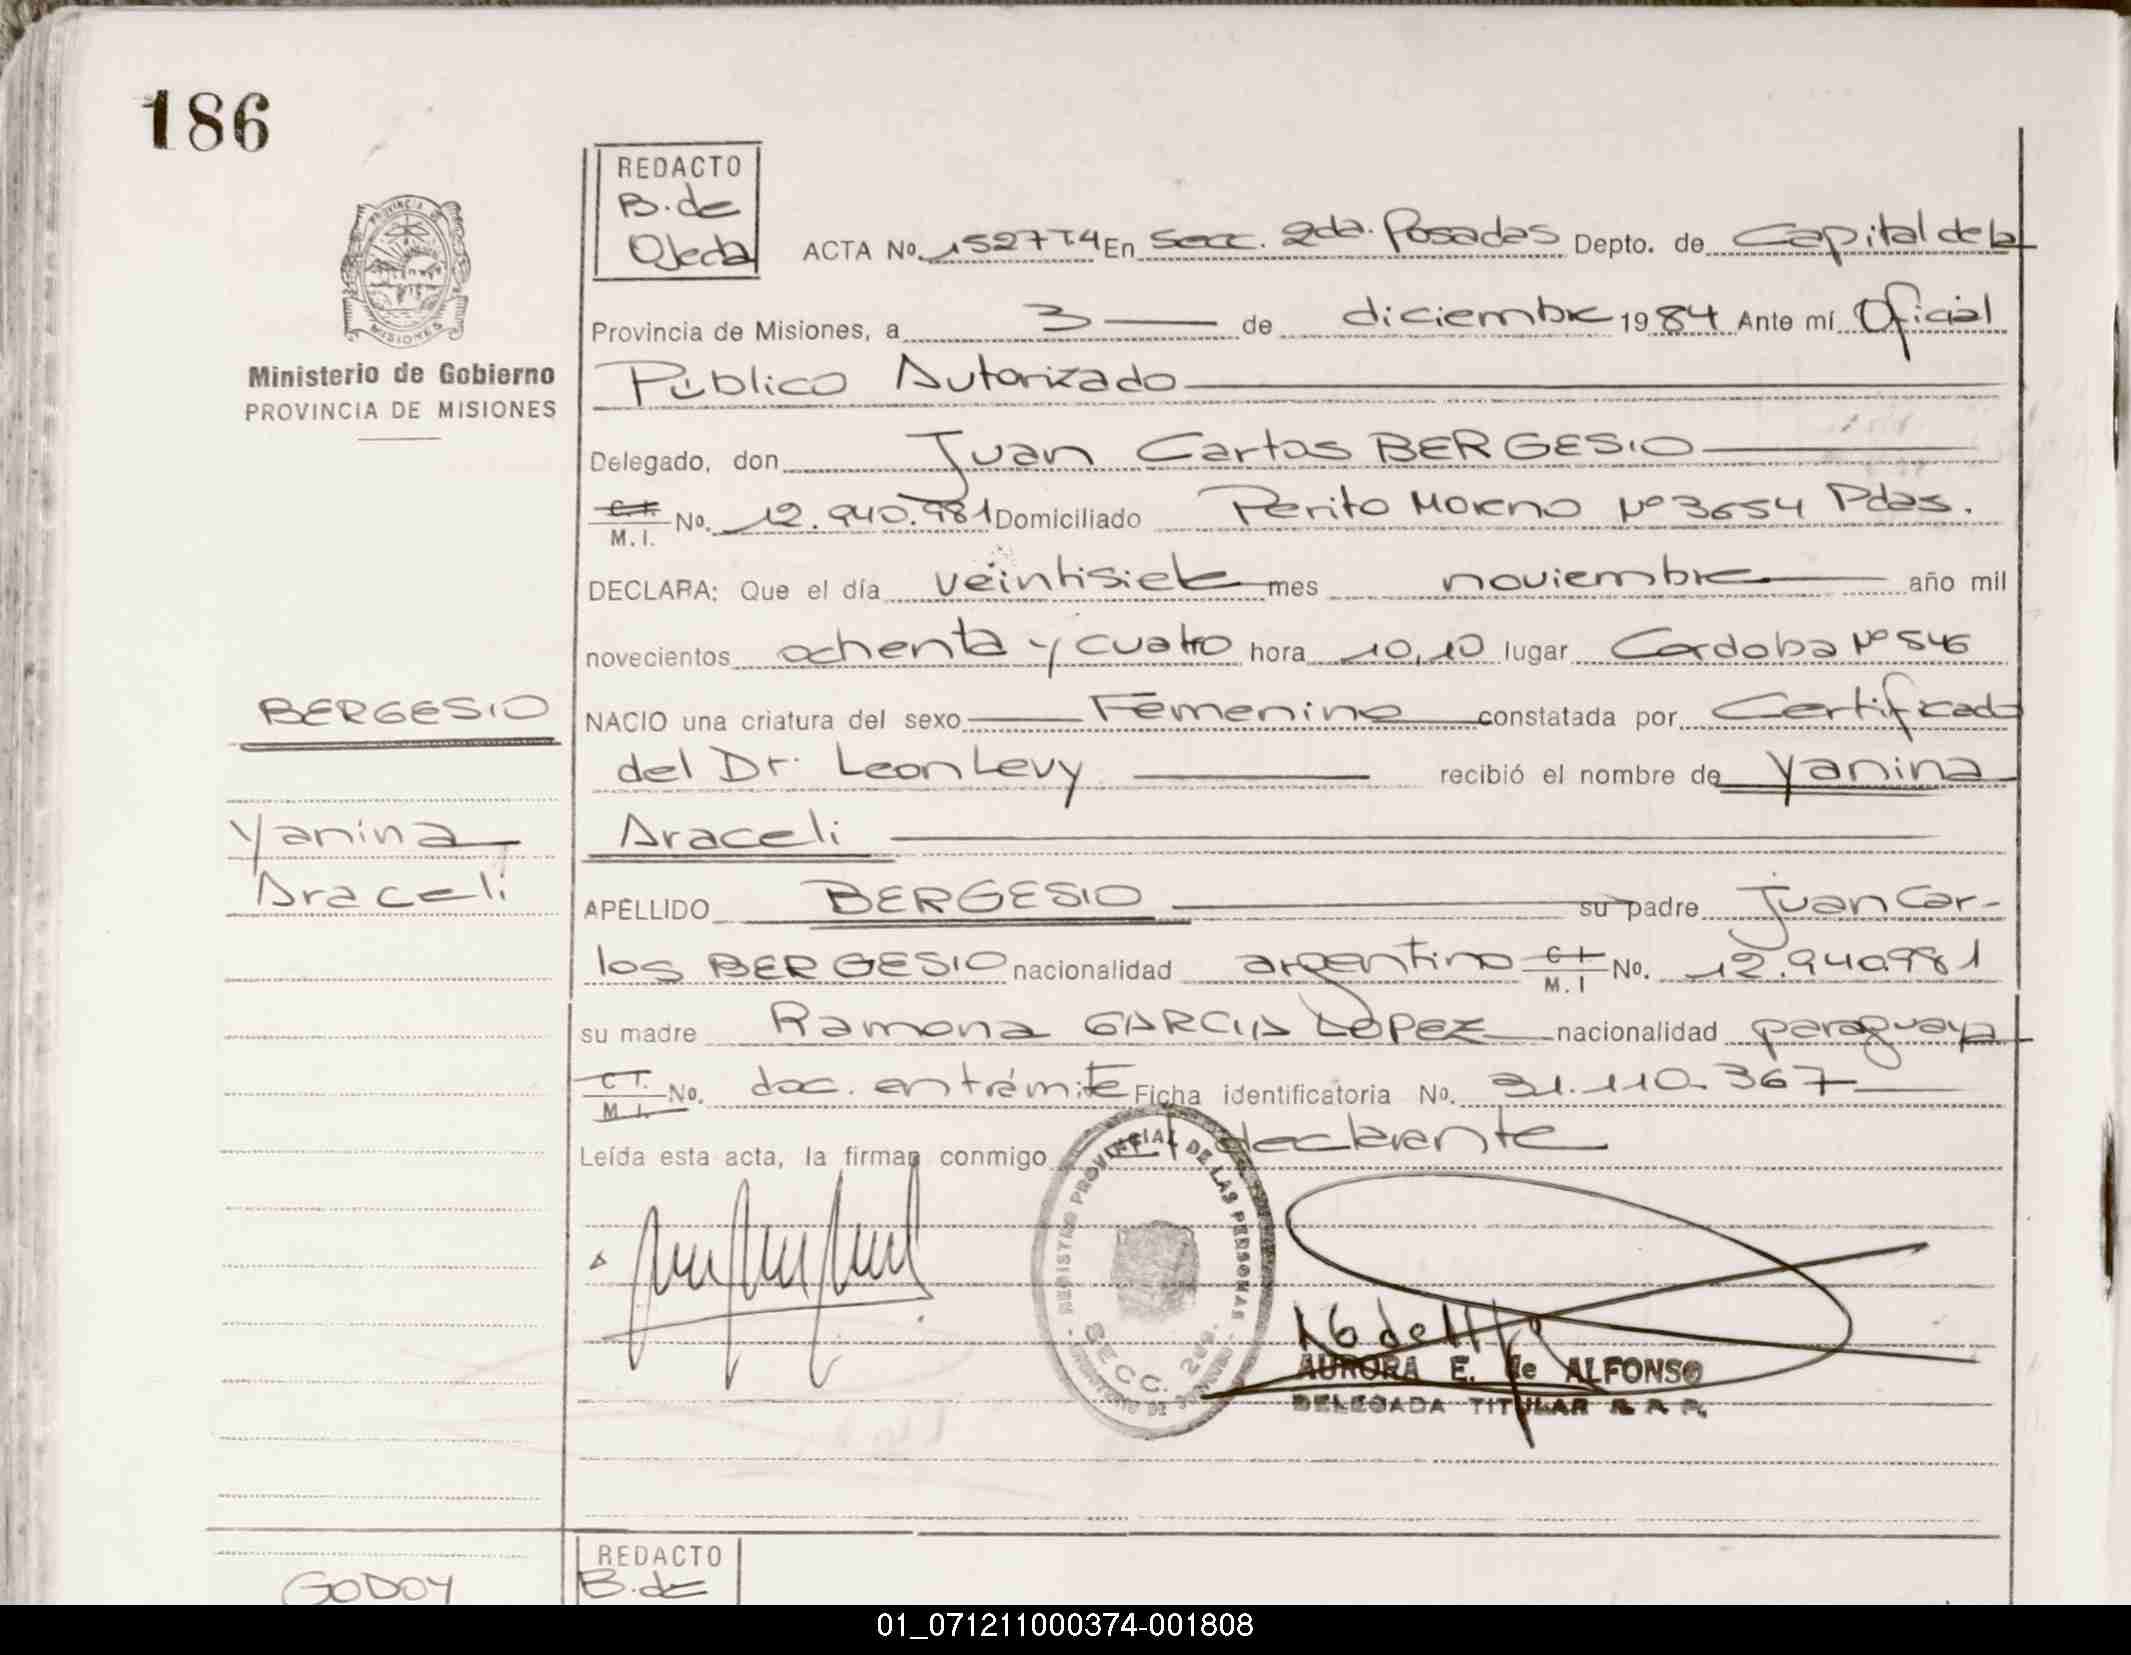 186
REDACTO
B. de
Ojeda
PROVINCIA DE
MISIONES
Ministerio de Gobierno
PROVINCIA DE MISIONES
ACTA Nº 1527T4 En Secc. 2da. Posadas Depto. de Capital de la
Provincia de Misiones, a 3 de diciembre 1984 Ante mí Oficial
Público Autorizado
Delegado, don Juan Carlos BERGESIO
C.I. M.I. Nº. 12.940.981 Domiciliado Perito Moreno Nº 3654 Pdas.
DECLARA: Que el día veintisiete mes noviembre año mil
novecientos ochenta y cuatro hora 10,10 lugar Cordoba Nº 546
BERGESIO
NACIO una criatura del sexo Femenino constatada por Certificado
del Dr. Leon Levy recibió el nombre de Yanina
Yanina
Araceli
Araceli
APELLIDO BERGESIO su padre Juan Car-
los BERGESIO nacionalidad argentino C I M. I No. 12.940.981
su madre Ramona GARCIA LOPEZ nacionalidad paraguaya
C I. M I. No. doc. en trámite Ficha identificatoria No. 31.110.367
Leída esta acta, la firman conmigo el declarante
REGISTRO PROVINCIAL DE LAS PERSONAS
SECC. 2da.
AURORA E. de ALFONSO
DELEGADA TITULAR R. P. P.
REDACTO
GODOY
B. de
01_071211000374-001808